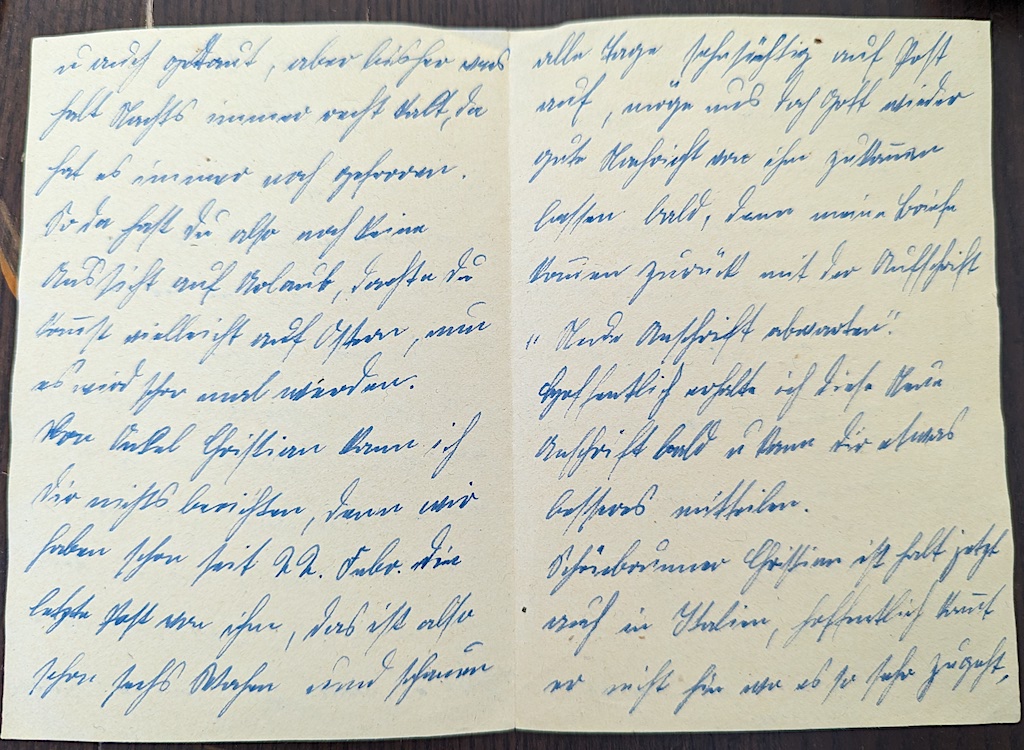 u auch getaut, aber bisher war's
halt Nachts immer recht kalt, da
hat es immer noch gefroren.
So da hast du also noch keine
Aussicht auf Urlaub, dachte du
kom̅st vielleicht auf Ostern, nun
es wird schon mal werden.
Von Onkel Christian kann ich
dir nichts berichten, denn wir
haben schon seit 22. Febr. die
letzte Post von ihm, das ist also
schon sechs Wochen und schauen
alle Tage sehnsüchtig auf Post
auf, möge uns doch Gott wieder
gute Nachricht von ihm zukom̅en
lassen bald, denn meine Briefe
kom̅en zurück mit der Aufschrift
"Neue Anschrift abwarten".
Hoffentlich erhalte ich diese Neue
Anschrift bald u kann dir etwas
besseres mitteilen.
Schönbrunner Christian ist halt jetzt
auch in Italien, hoffentlich kom̅t
er nicht hin wo es so sehr zugeht,